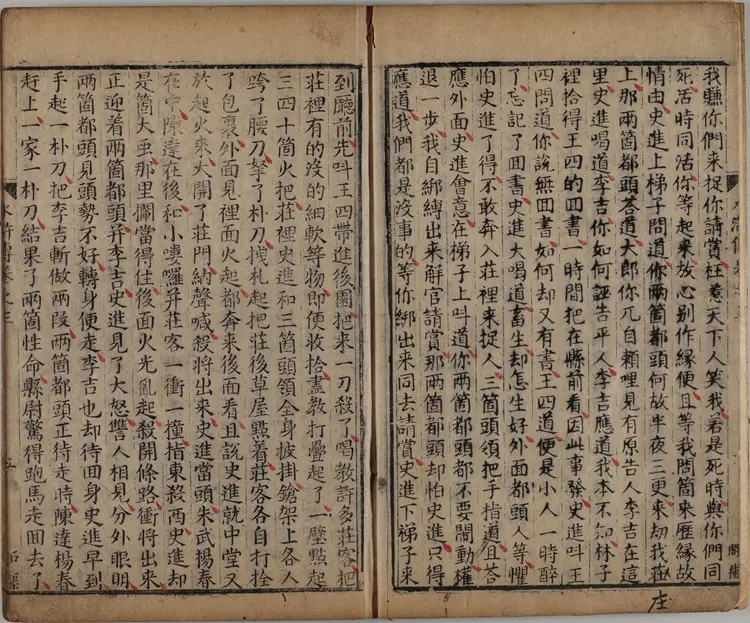 我驕你們来捉你請賞枉惹天下人笑我若是死時與你們同
死活時同活你等起来放心别作緣便且等我問箇来歷緣故
情由史進上梯子問道你兩箇都頭何故半夜三更来劫我莊
上那兩箇都頭荅道大郎你兀自賴哩見有原告人李吉在這
里史進喝道李吉你如何誣告平人李吉應道我本不知林子
裡拾得王四的囬書一時間把在縣前看因此事發史進叫王
四問道你說無囬書如何却又有書王四道便是小人一時醉
了忘記了囬書史進大喝道畜生却怎生好外面都頭人等懼
怕史進了得不敢奔入莊裡来捉人三箇頭領把手指道且荅
應外面史進會意在梯子上叫道你兩箇都頭都不要閙動權
退一步我自綁縛出来解官請賞那兩箇都頭却怕史進只得
應道我們都是没事的等你綁出来同去請賞史進下梯子来
庄
到廳前先叫王四帶進後園把来一刀殺了喝教許多莊客把
莊裡有的没的細軟等物即便收拾盡教打疊起了一壁點起
三四十箇火把莊裡史進和三箇頭領全身披掛鎗架上各人
跨了腰刀拏了朴刀拽札起把莊後草屋點着莊客各自打拴
了包裹外面見裡面火起都奔来後面看且説史進就中堂又
放起火来大開了莊門納聲喊殺將出来史進當頭朱武揚春
在中陳達在後和小嘍囉并莊客一衝一撞指東殺西史進却
是箇大虫那里攔當得住後面火光亂起殺開條路衝將出来
正迎着兩箇都頭并李吉史進見了大怒讐人相見分外眼明
兩箇都頭見頭勢不好轉身便走李吉也却待囬身史進早到
手起一朴刀把李吉斬做兩段兩箇都頭正待走時陳達楊春
赶上一家一朴刀結果了兩箇性命縣尉驚得跑馬走囬去了
水滸傳卷之三
五